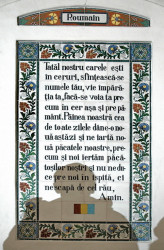 Roumain
Tatăl nostru carele ești
în ceruri, sfințească-se
numele tău, vie împără
ția ta, facă-se voia ta pre
cum în cer așa și pre pă
mânt. Pâinea noastră cea
de toate zilele dăne-o nouă
astăzi și ne iartă nouă
păcatele noastre, pre
cum și noi iertăm păcă
toșilor noștri și nu ne du
ce pre noi în ispită, ci
ne scapă de cel rău,
Amin.